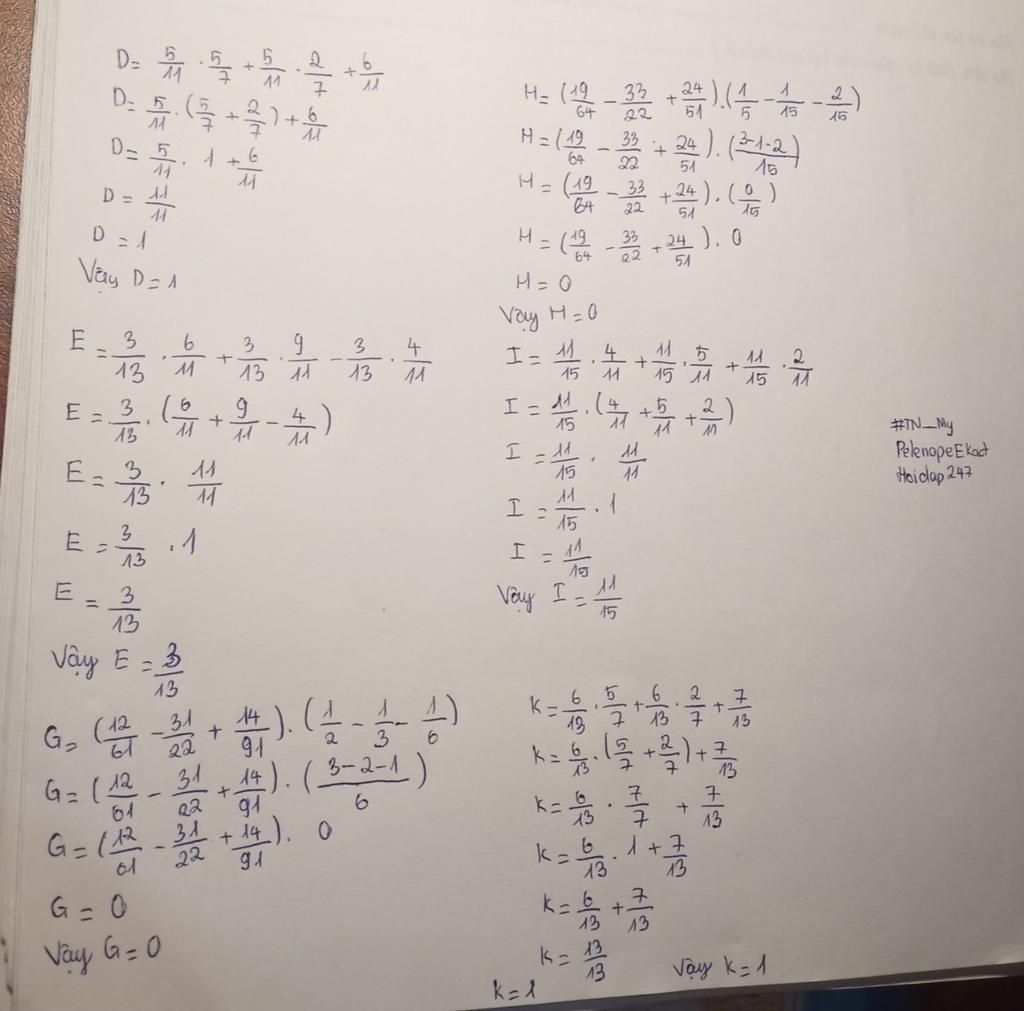 D = 5/11 . 5/7 + 5/11 . 2/7 + 6/11
D = 5/11 . (5/7 + 2/7) + 6/11
D = 5/11 . 1 + 6/11
D = 11/11
D = 1
Vậy D = 1
E = 3/13 . 6/11 + 3/13 . 9/11 - 3/13 . 4/11
E = 3/13 . (6/11 + 9/11 - 4/11)
E = 3/13 . 11/11
E = 3/13 . 1
E = 3/13
Vậy E = 3/13
G = (12/61 - 31/22 + 14/91) . (1/2 - 1/3 - 1/6)
G = (12/61 - 31/22 + 14/91) . (3-2-1/6)
G = (12/61 - 31/22 + 14/91) . 0
G = 0
Vậy G = 0
H = (19/64 - 33/22 + 24/51) . (1/5 - 1/15 - 2/15)
H = (19/64 - 33/22 + 24/51) . (3-1-2/15)
H = (19/64 - 33/22 + 24/51) . (0/15)
H = (19/64 - 33/22 + 24/51) . 0
H = 0
Vậy H = 0
I = 11/15 . 4/11 + 11/15 . 5/11 + 11/15 . 2/11
I = 11/15 . (4/11 + 5/11 + 2/11)
I = 11/15 . 11/11
I = 11/15 . 1
I = 11/15
Vậy I = 11/15
K = 6/13 . 5/7 + 6/13 . 2/7 + 7/13
K = 6/13 . (5/7 + 2/7) + 7/13
K = 6/13 . 7/7 + 7/13
K = 6/13 . 1 + 7/13
K = 6/13 + 7/13
K = 13/13
K = 1
Vậy K = 1
#TN_My
PelenopeEkact
Hoidap247